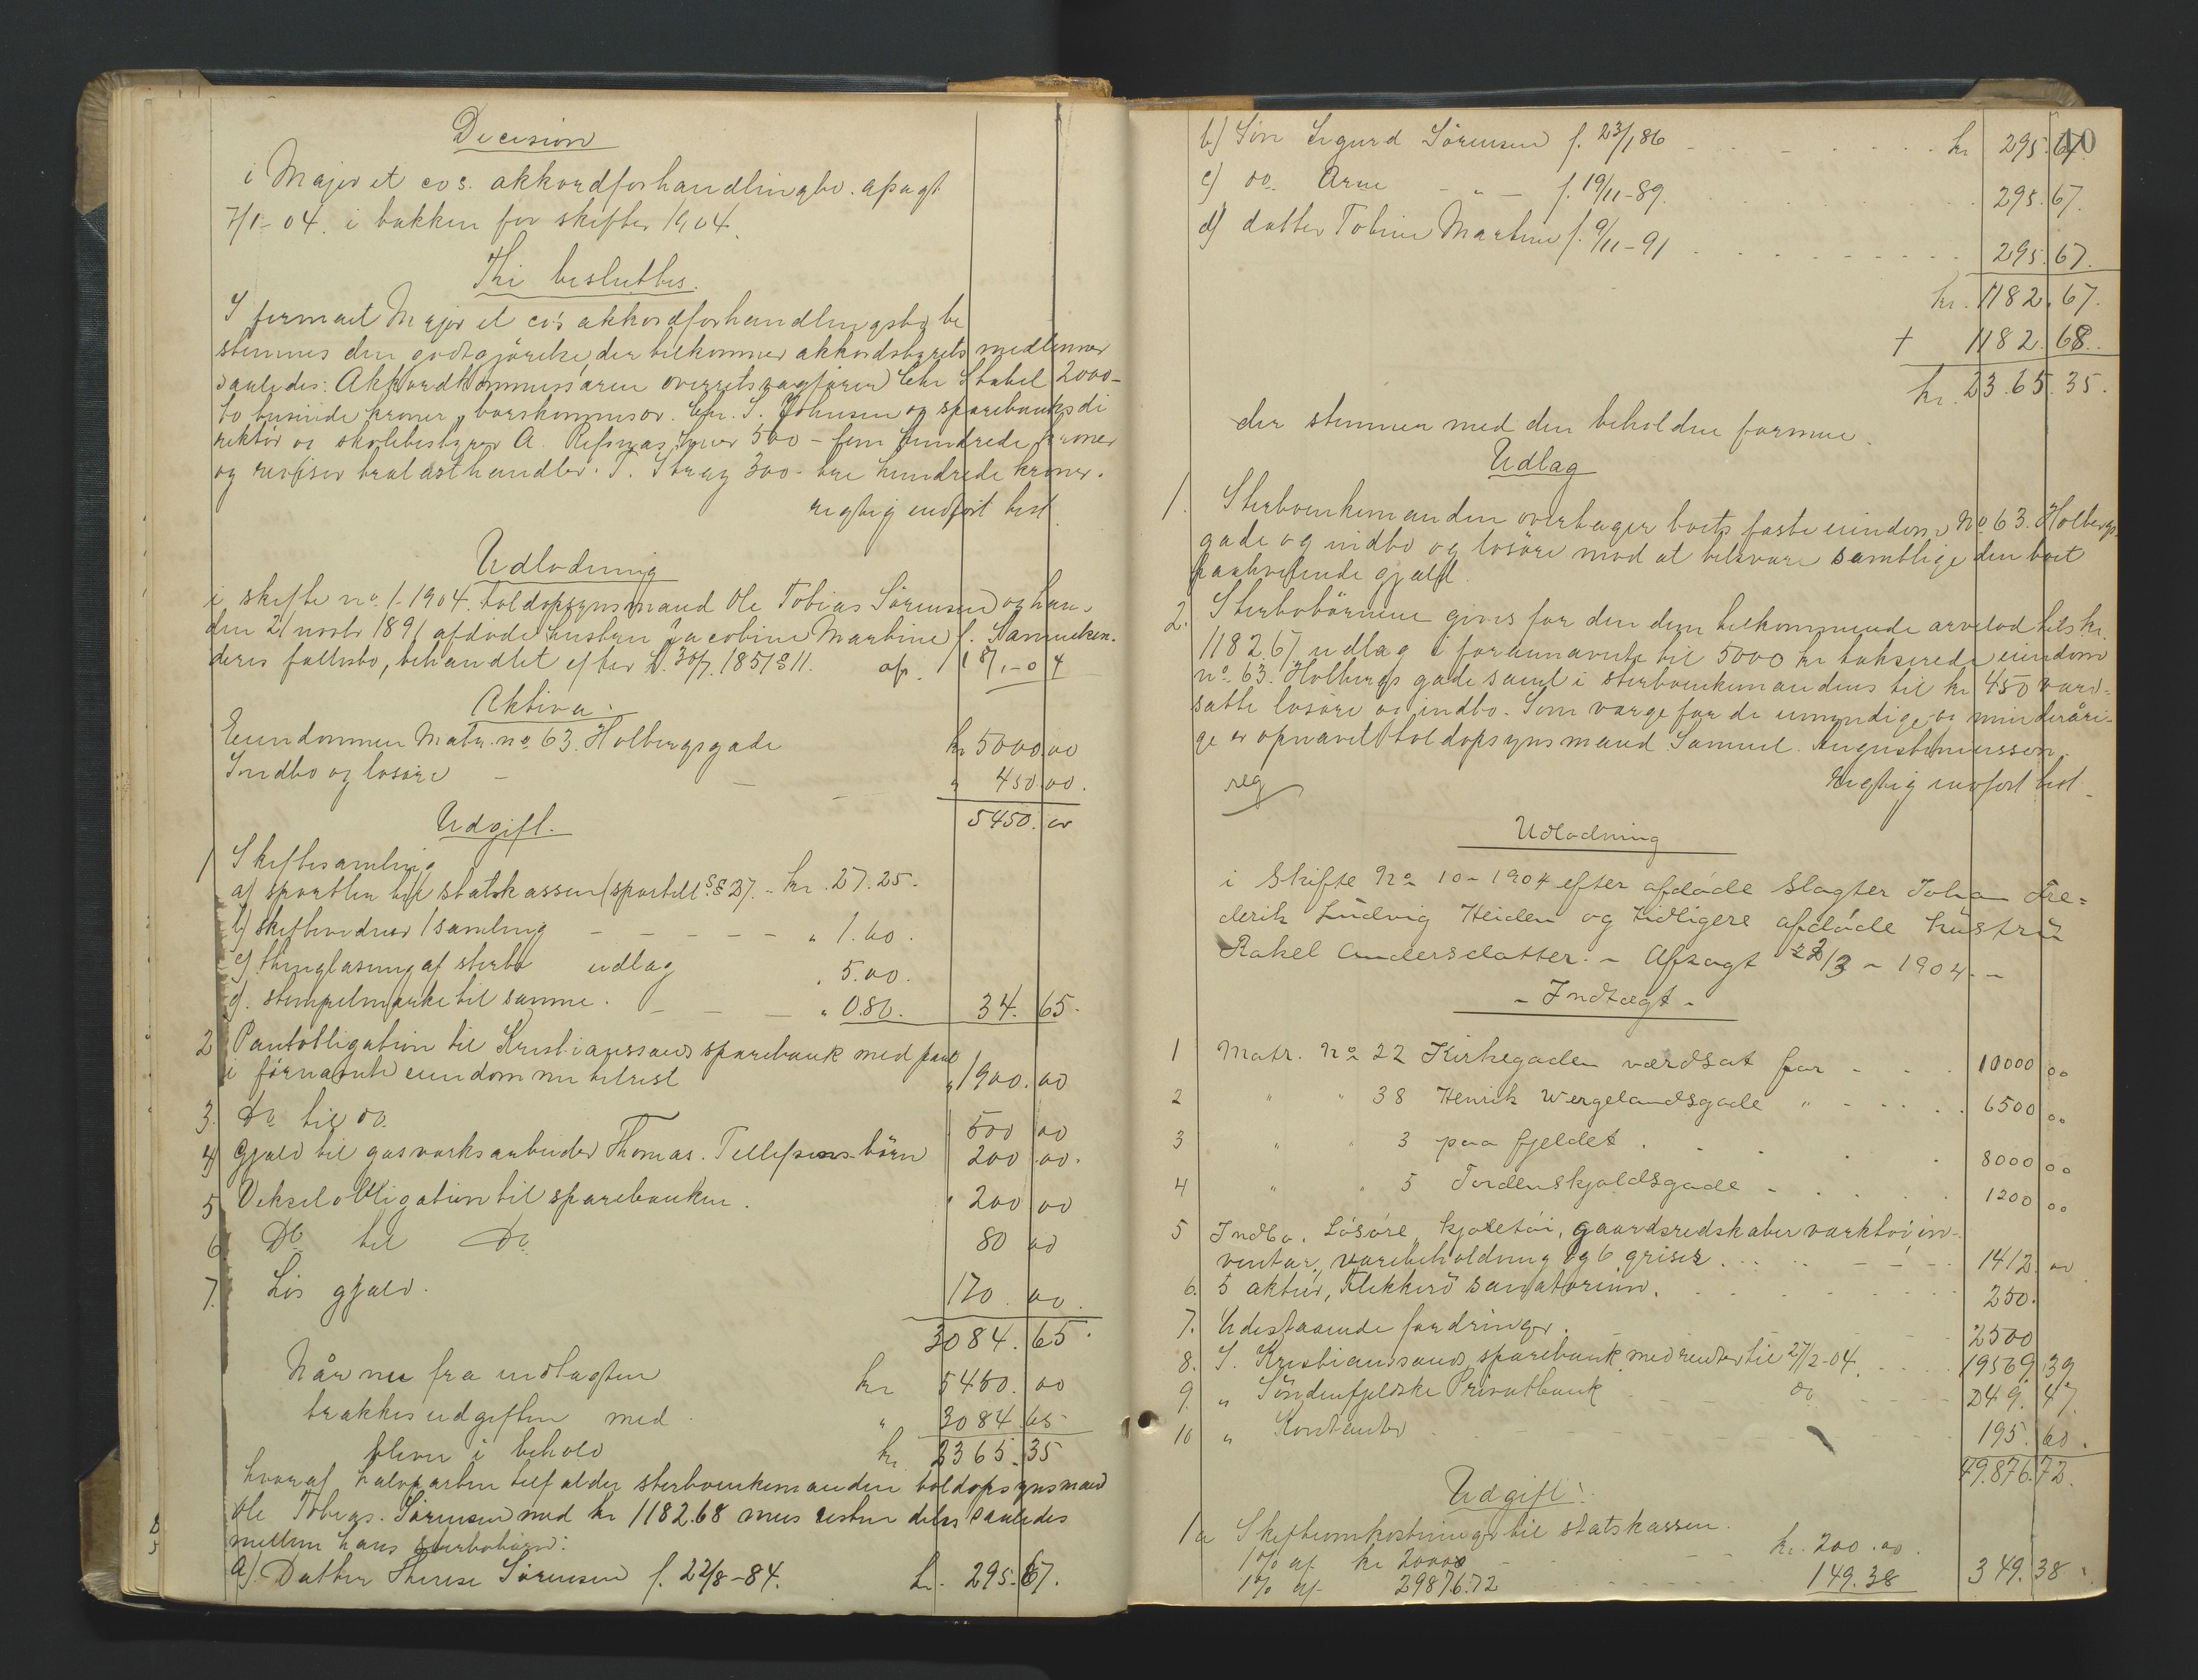 Decision
i Majer et cos. akkordforhandlingsbo. afsagt
7/1-04. i bokken for skifter 1904.
Thi besluttes.
I firmaet Majer et co's akkordforhandlingsbo be
stemmes den godtgjörelse, der tilkommer akkordstyrets medlemmer
saaledes: Akkordkommissæren overretssagförer Chr Stabel 2000-
to tusinde kroner, vareskommisær. Chr. S. Johnsen og sparebanksdi
rektör og skolebestyrer A. Refsnæs hver 500 - fem hundrede kroner
og revisor trælasthandler. T. Stray 300- tre hundrede kroner.
rigtig indfört test
Udlodning
i skifte no. 1-1904. toldopsynsmand Ole Tobias Sörensen og han-
den 21 novbr 1891 afdöde hustru Jacobine Martine f. Samuelsen.
deres fællesbo, behandlet efter L. 30/7. 1851 § 11. afs. 18/1-04
Aktiva.
Eiendommen Matr. no. 63. Holbergsgade kr 5000.00
Indbo og lösöre - - - " 450.00.
5450.00
Udgift.
1 Skiftesamling
a) sportler til statskassen (sportell. §§ 27. - kr. 27.25.
b) skiftevidner 1 samling - - - - - " 1.60.
c) thinglæsning af sterbo udlag " 5.00.
d). stempelmærke til samme. - - - " 0.80. 34. 65.
2 Pantobligation til Kristianssands sparebank med pant
i förnævnte eiendom nu tilrest " 1900.00
3. Do til do. 500 00
4) Gjæld til gasværksarbeider Thomas. Tellefsens börn 200 00.
5 Vekselobligation til sparebanken. " 200 00
6. Do til Do 80 00
7. Lös gjæld. 170. 00.
3084. 65.
Når nu fra indtægten kr 5450. 00
trækkes udgiften med " 3084.65
bliver i behold kr. 2365.35
hvoraf halvparten tilfalder sterboenkemanden toldopsynsmand
Ole Tobias. Sörensen med kr 1182.68 mens resten deles saaledes
mellem hans sterbobörn:
a). Datter Therese Sörensen f. 22/8-84. kr. 295.67.
40
b) Sön Sigurd Sörensen f. 23/1 86 kr 295.67.
c) do. Arne - " - f. 19/11-89. 295.67.
d) datter Tobine Martine f. 9/11-91 295.67.
kr. 1182.67.
+ 1182.68.
kr. 23.65.35.
der stemmer med den beholdne formue.
Udlag
1. Sterboenkemanden overtager boets faste eiendom No 63. Holbergs
gade og indbo og lösöre mod at tilsvare samtlige den boet
paahvilende gjæld.
2. Sterbobörnene gives for den dem tilkommende arvelod tils kr.
1182.67 udlag i forannævnte til 5000 kr takserede eiendom
no. 63. Holbergs gade samt i sterboenkemandens til kr 450 værd-
satte lösöre og indbo. Som værge for de umyndige og minderåri-
ge er opnævnt toldopsynsmand Samuel. Augustinussen.
reg Rigtig indfört test
Udlodning
i Skifte No 10-1904 efter afdöde Slagter Johan Fre=
derik Ludvig Heiden og tidligere afdöde hustru
Rakel Andersdatter. - Afsagt 22/3 - 1904. -
- Indtægt -
1 Matr. No 22 Kirkegaden værdsat for - . . 10000 00
2 " " 38 Henrik Wergelandsgade " - . . . 6500 00
3 " " 3 paa fjeldet . . . . 8000 00
4 " " 5 Tordenskjoldsgade - . . . 1200 00
5 Indbo. Lösöre, kjöretöi, gaardsredskaber værktöi in-
ventar, varebeholdning og 6 griser. 1412. 00
6. 5 aktier, Flekkerö sanatorium. 250.
7. Udestaaende fordringer. 2500
8. I. Kristianssands sparebank med renter til 27/2-04. 19569.39
9. " Söndenfjeldske Privatbank do 249. 47.
10 " Kontanter 195. 60.
49.876.72.
Udgift:
1 a Skifteomkostninger til statskassen.
1% af. kr 20000 - - - kr. 200.00.
1% af. 29876.72 149.38 349.38.